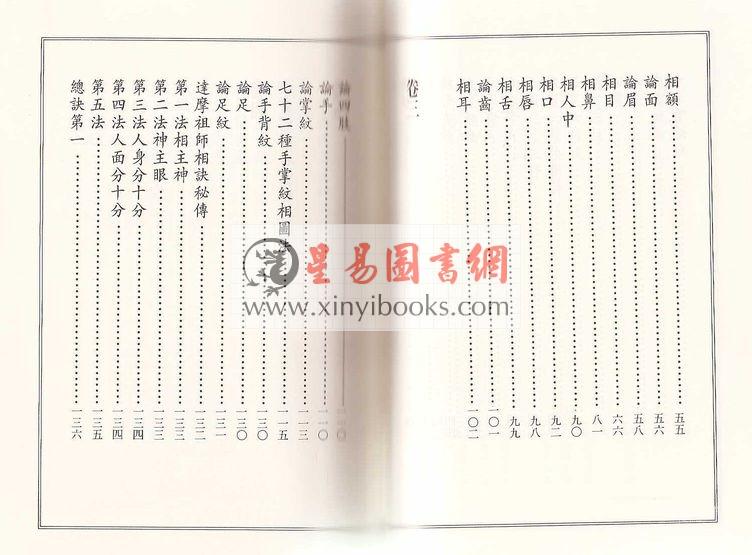 相額⋯⋯五五
論面⋯⋯五六
論眉⋯⋯五八
相目⋯⋯六六
相鼻⋯⋯八一
相人中⋯⋯九〇
相口⋯⋯九二
相唇⋯⋯九八
相舌⋯⋯九九
論齒⋯⋯一〇一
相耳⋯⋯一〇二
卷三
論四肢⋯⋯一一〇
論手⋯⋯一一〇
論掌紋⋯⋯一一三
七十二種手掌紋相圖法⋯⋯一一五
論手背紋⋯⋯一三〇
論足⋯⋯一三〇
論足紋⋯⋯一三一
達摩祖師相訣秘傳⋯⋯一三二
第一法相主神⋯⋯一三三
第二法神主眼⋯⋯一三三
第三法人身分十分⋯⋯一三四
第四法人面分十分⋯⋯一三四
第五法⋯⋯一三五
總訣第一⋯⋯一三六
星易圖書網
www.xinyibooks.com